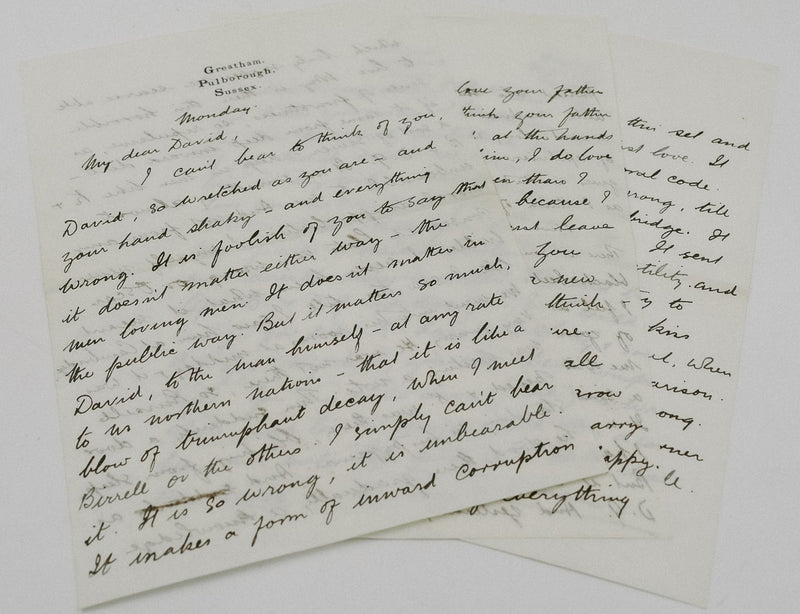 Greatham.
Pulborough.
Sussex.
Monday.
My dear David,
I can't bear to think of you,
David, so wretched as you are – and
your hand shaky – and everything
wrong. It is foolish of you to say that
it doesn't matter either way – the
men loving men. It doesn't matter in
the public way. But it matters so much,
David, to the man himself – at any rate
to us northern nations – that it is like a
blow of triumphant decay, when I meet
Birrell or the others. I simply can't bear
it. It is so wrong, it is unbearable.
It makes a form of inward corruption
love your father
think your father
at the hands
I do love
en than I
because I
leave
you
new
think
ire.
all
arry
appy.
everything
this sel and
st love. It
ral code.
wrong, till
bridge. It
It sent
tility, and
to
kiss
when
arison.
ong.
ner
le.